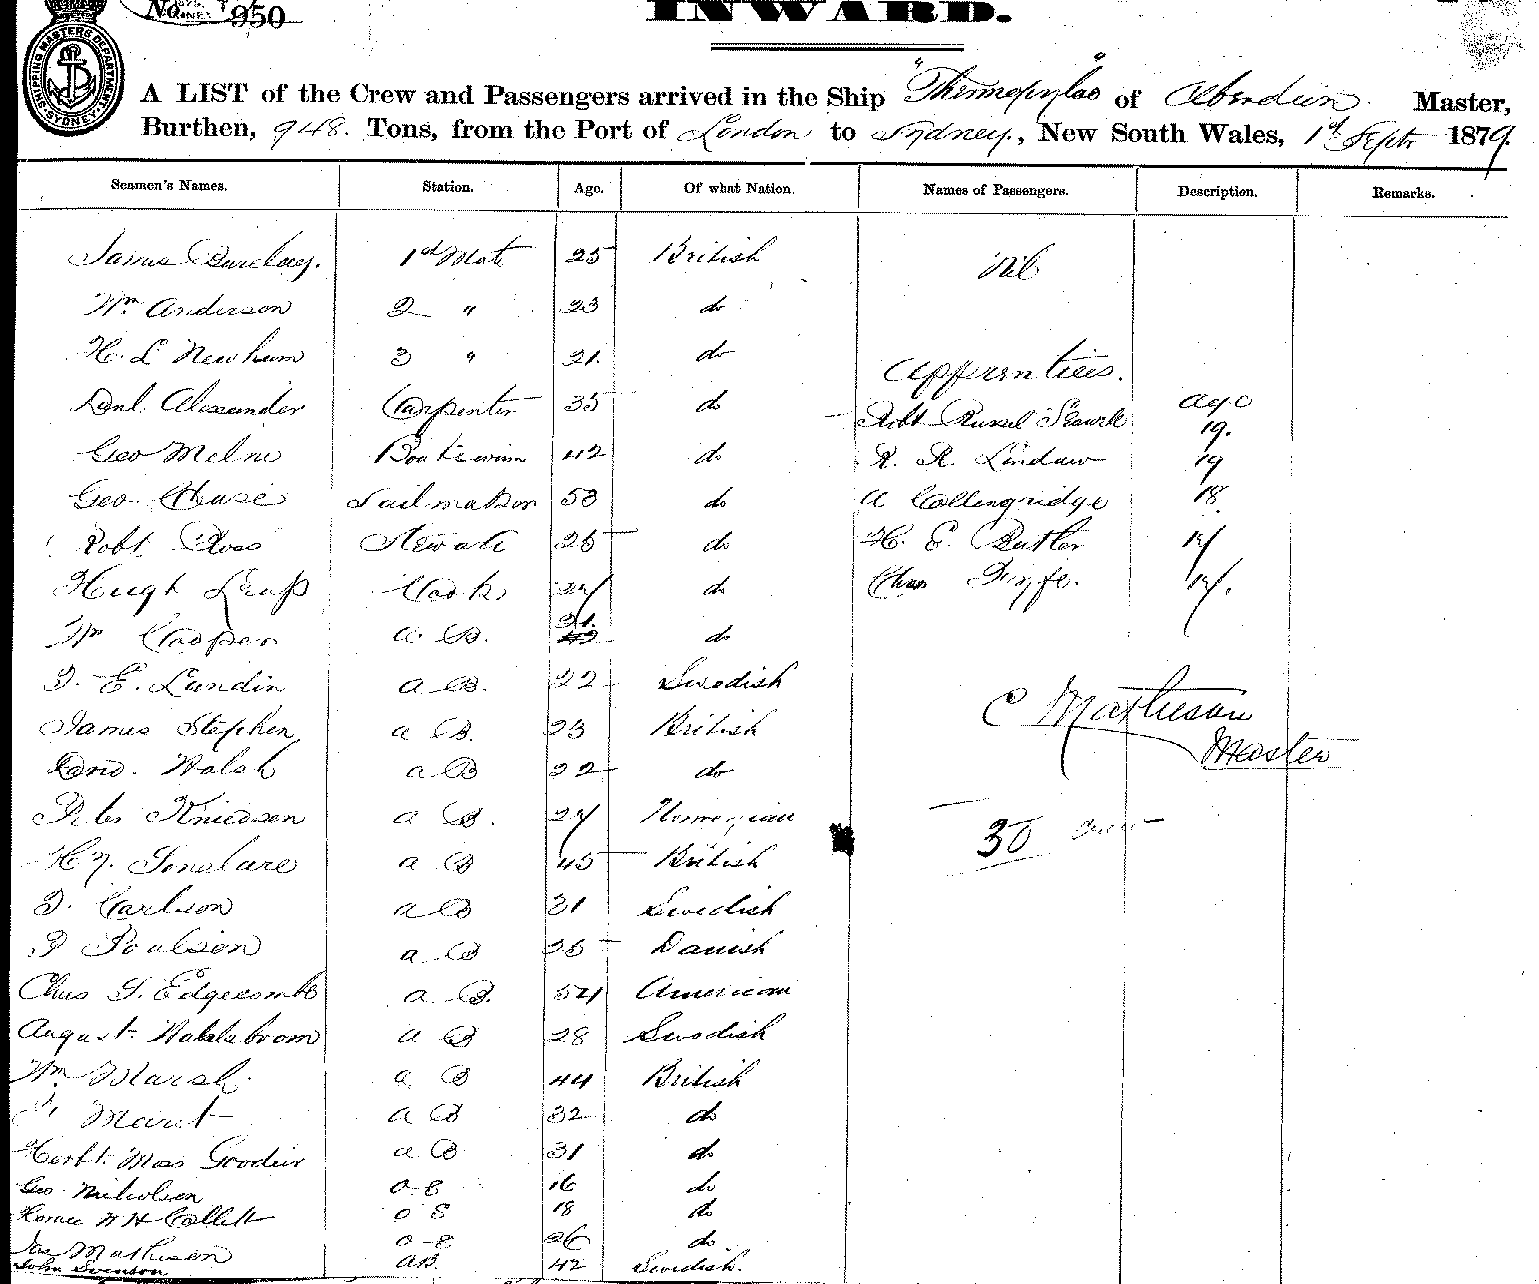 No. 950
INWARD.
SHIPPING MASTERS DEPARTMENT SYDNEY
A LIST of the Crew and Passengers arrived in the Ship "Thermopylae" of Aberdeen Master,
Burthen, 948. Tons, from the Port of London to Sydney, New South Wales, 1st Sept 1879.
Seamen's Names. Station. Age. Of what Nation. Names of Passengers. Description. Remarks.
James Barclay. 1st Mate 25 British Nil
Wm Anderson 2 " 23 do
H. L Newham 3 " 21. do
Apprentices.
Danl. Alexander Carpenter 35 do Robt Russel age
19.
Geo Melne Boatswain 42 do R. R. Lindaw 19
Geo Sailmaker 53 do A Collingridge 18
Robt Ross Steward 26 do H. E. Butler 17
Hugh Cook 27 do Chas Fyfe. 17.
Wm Cooper A. B. 21. do
J. E. Lundin A B. 22 Swedish
James Stephen A B. 23 British
C Matheson
Edwd. Walsh A B 22 do
Master
Peter A B. 27 Norwegian
30
Hy. A B 45 British
J. Carlson A B 31 Swedish
P Poulsen A B Danish
Chas S. Edgecombe A B. 54 American
August A B 28 Swedish
Wm Marsh A B 44 British
A B 32 do
Herbt. Moss Goodeir A B 31 do
Geo Nicholson O S 16 do
Horace W H Collett O S 18 do
Jas Matheson O S 26 do
John Svenson AB. 42 Swedish.